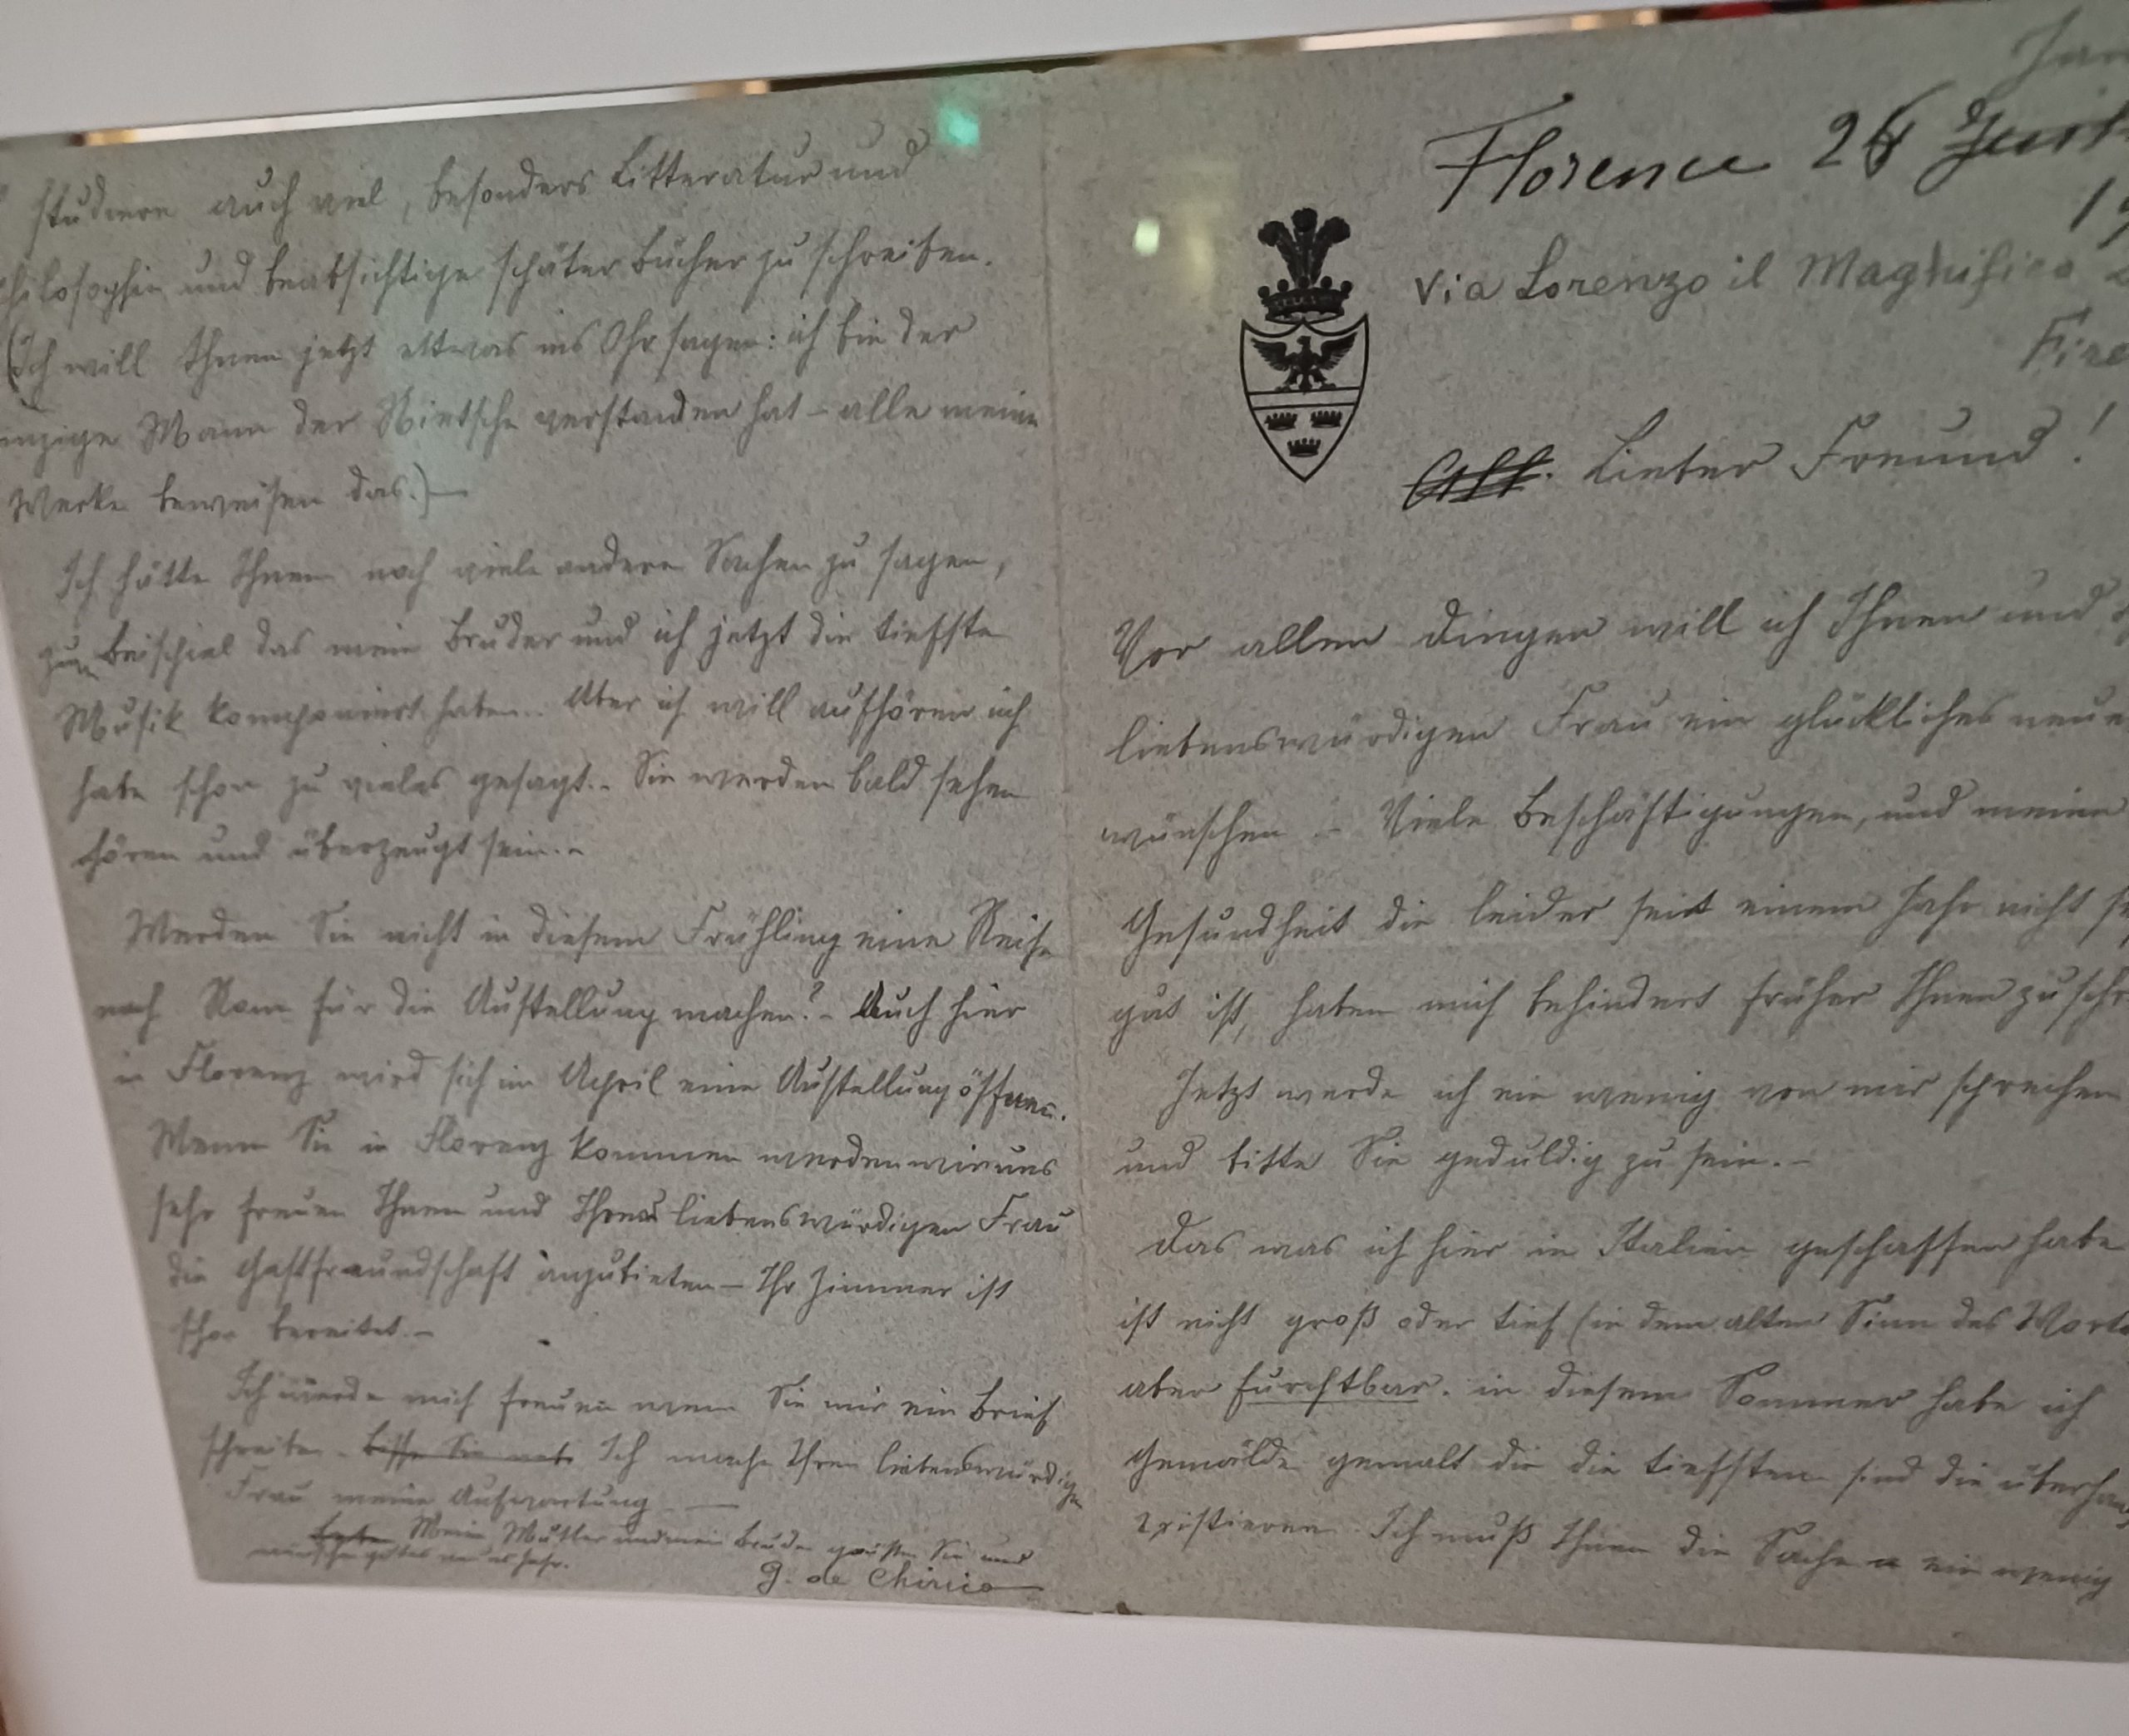 studiere auch viel, besonders Litteratur und
hilosophie und beabsichtige später Bücher zu schreiben.
(Ich will Ihnen jetzt ettwas ins Ohr sagen: ich bin der
inzige Mann der Nietsche verstanden hat – alle meine
Werke beweisen das.) —
Ich hätte Ihnen noch viele andere Sachen zu sagen,
zum Beispiel das mein Bruder und ich jetzt die tiefste
Musik komponiert haben.. Aber ich will aufhören ich
habe schon zu vieles gesagt. - Sie werden bald sehen
hören und überzeugt sein. -
Werden Sie nicht in diesem Frühling eine Reise
nach Rom für die Austellung machen? - Auch hier
in Florenz wird sich im April eine Austellung öffnen.
Wenn Sie in Florenz kommen werden wir uns
sehr freuen Ihnen und Ihrer liebenswürdigen Frau
die Gastfreundschaft anzubieten – Ihr Zimmer ist
schon bereitet. -
Ich werde mich freuen wenn Sie mir ein Brief
schreiben - Ich mache Ihren liebenswürdigen
Frau meine Aufwartung —
Meine Mutter und mein Bruder grüssen Sie und
gutes neues Jahr.
G. de Chirico
Florence 26
Via Lorenzo il Magnifico
Fire
Lieber Freund!
Vor allem Dingen will ich Ihnen und
liebenswürdigen Frau ein glückliches neue
wünschen - Viele Beschäftigungen, und meine
Gesundheit die leider seit einem Jahr nicht se
gut ist, haben mich behindert früher Ihnen zu schr
Jetzt werde ich ein wenig von mir sprechen
und bitte Sie geduldig zu sein. -
Das was ich hier in Italien geschaffen habe
ist nicht groß oder tief (in dem alten Sinn des Worte
aber furchtbar. in diesem Sommer habe ich
Gemälde gemalt die die tiefsten sind die überhau
existieren. Ich muß Ihnen die Sache ein wenig